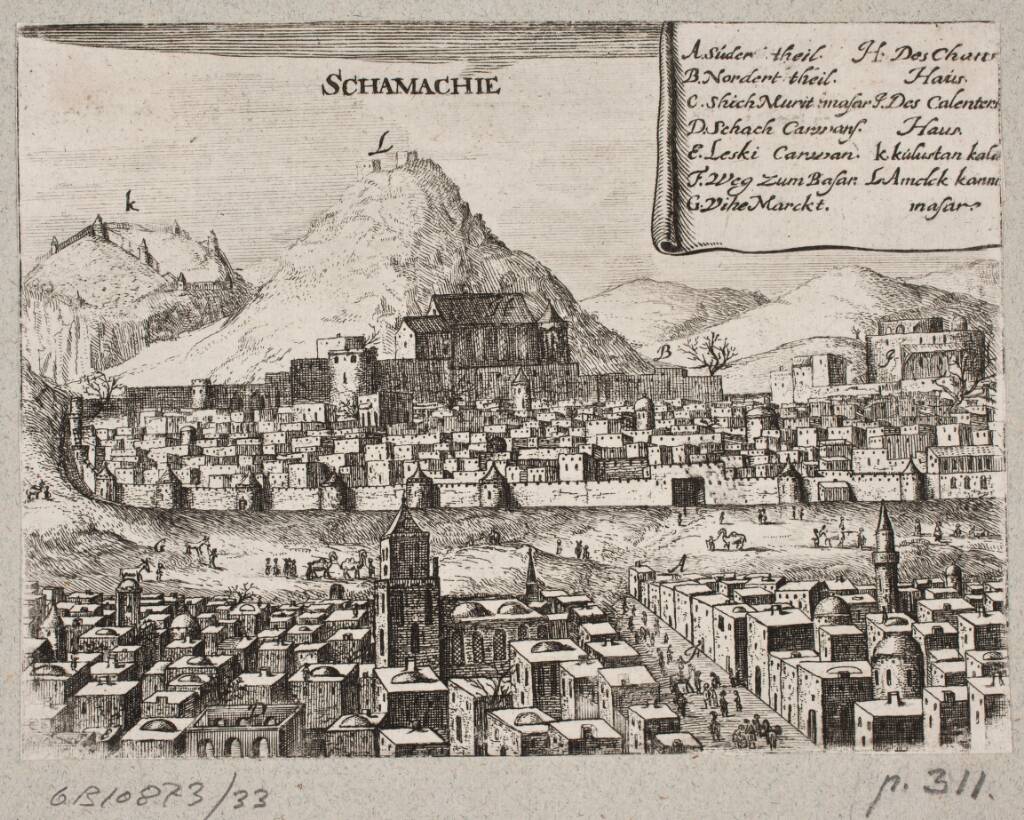 SCHAMACHIE
A. Suder theil.
B. Nordert theil.
C. Shich Murit masar
D. Schach Carwans.
E. Leski Carwan.
F. Weg zum Basar
G. Vihe Marckt.
H. Des Chans
Haus.
J. Des Calenters
Haus.
k. kulustan kale
L. Amelek kanna
masar.
L
k
B
J
A
D
6B10873/33
p. 311.